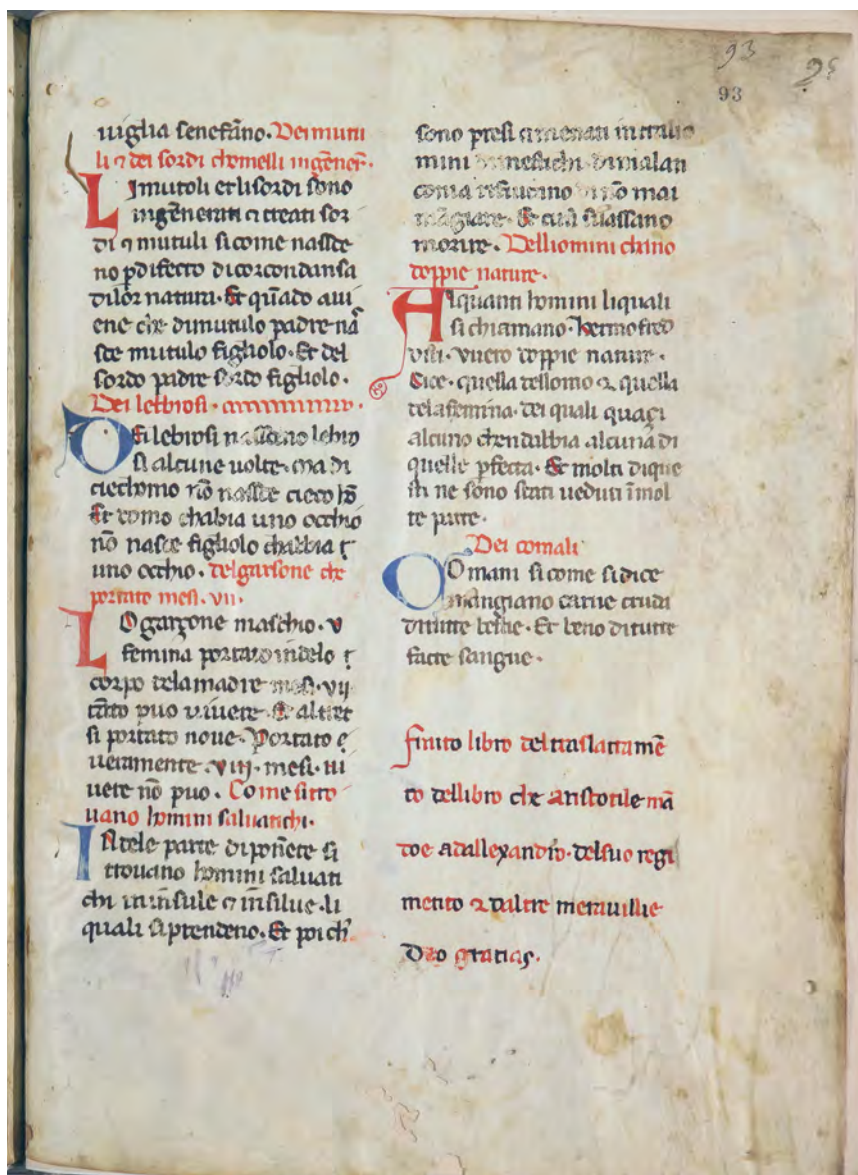 93
95
93
uiglia senefãno. Dei mutu
li ⁊ dei sordi chomelli ingẽner̃.
LI mutoli et li sordi sono
ingẽnerati ⁊ creati sor
di ⁊ mutuli si come nassce
no p difecto di corcondansa
di lor natura. Et quãdo aui
ene che di mutulo padre nã
sce mutulo figliolo. Et del
sordo padre sordo figliolo.
Dei lebbrosi.
DEi lebrosi nassceno lebro
si alcune uolte. ma di
ciechomo nõ nassce cieco hõ
Et como chabia uno occhio
nõ nasce figliolo chabbia
uno occhio. del garsone che
portato mesi. vii.
LO garzone maschio. v
femina portato in delo
corpo dela madre mesi. vij
tãto puo viuere. Et altret
si portato noue. Portato e
ueramente. viij. mesi. ui
uere nõ puo. Come si tro
uano homini saluatichi.
IN tele parte di ponẽte si
trouano homini saluati
chi in insule ⁊ in silue. li
quali si prendeno. Et poi ch̃
sono presi ⁊ menati in tra lio
mini
conia
morire. Delli omini chãno
doppie nature.
ALquanti homini li quali
si chiamano. hermofrod
uero doppie nature.
Cice. quella dellomo ⁊ quella
dela femina. dei quali quaçi
alcuno chendabbia alcuna di
quelle pfecta. Et molti di que
sti ne sono stati ueduti ĩ mol
te parte.
Dei comali
COmani si come si dice
mangiano carne cruda
di tutte bestie. Et beno di tutte
facte sangue.
finito libro del traslattamẽ
to del libro che aristotile mã
doe ad allexandro. del suo regi
mento ⁊ daltre merauillie
Deo gracias.